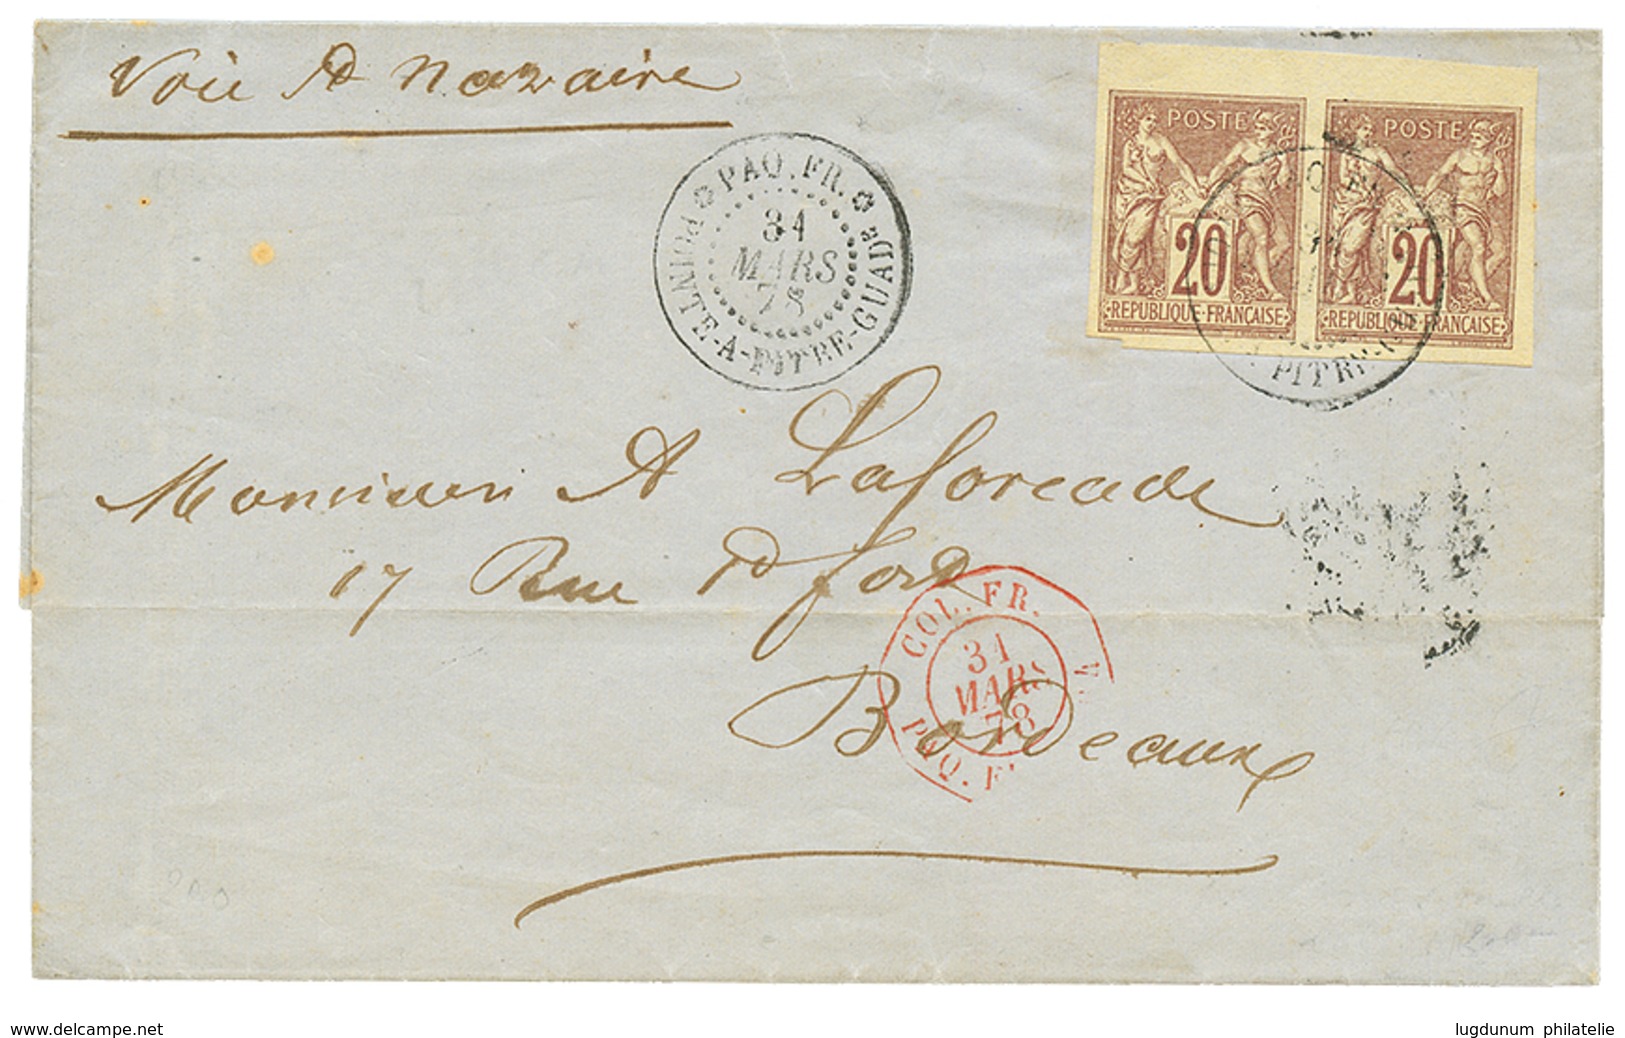 Voie St Nazaire
PAQ. FR.
31
MARS
78
POINTE-A-PITRE-GUADE
POSTE
20
REPUBLIQUE FRANÇAISE
POSTE
20
REPUBLIQUE FRANÇAISE
PITRE
Monsieur A Laforcade
17 Rue
Bordeaux
COL. FR.
31
MARS
78
PAQ. F
V.
www.delcampe.net
lugdunum philatelie